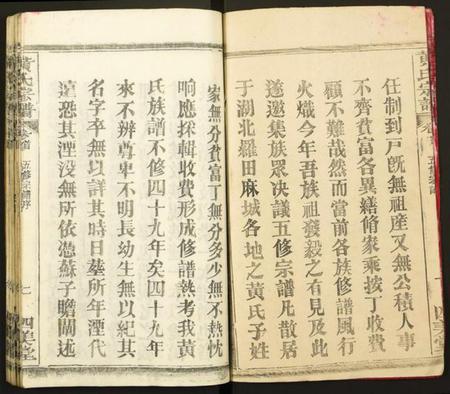 任制到戶既無祖産又無公積人事
不齊貧富各異繕脩家乘按丁收費
顧不難哉然而當前各族修譜風行
火熾今年吾族祖發毅之有見及此
遂邀集族眾決議五修宗譜凡散居
于湖北羅田麻城各地之黃氏子姓
黃氏宗譜
四美堂
家無分貧富丁無分多少無不熱忱
响應採輯收費形成修譜熱考我黃
氏族譜不修四十九年矣四十九年
來不辨尊卑不明長幼生無以紀其
名字卒無以詳其時日塟所年湮代
遠恐其湮没無所依憑蘇子瞻闡述
黃氏宗譜
卷首
五修宗譜序
七
四美堂